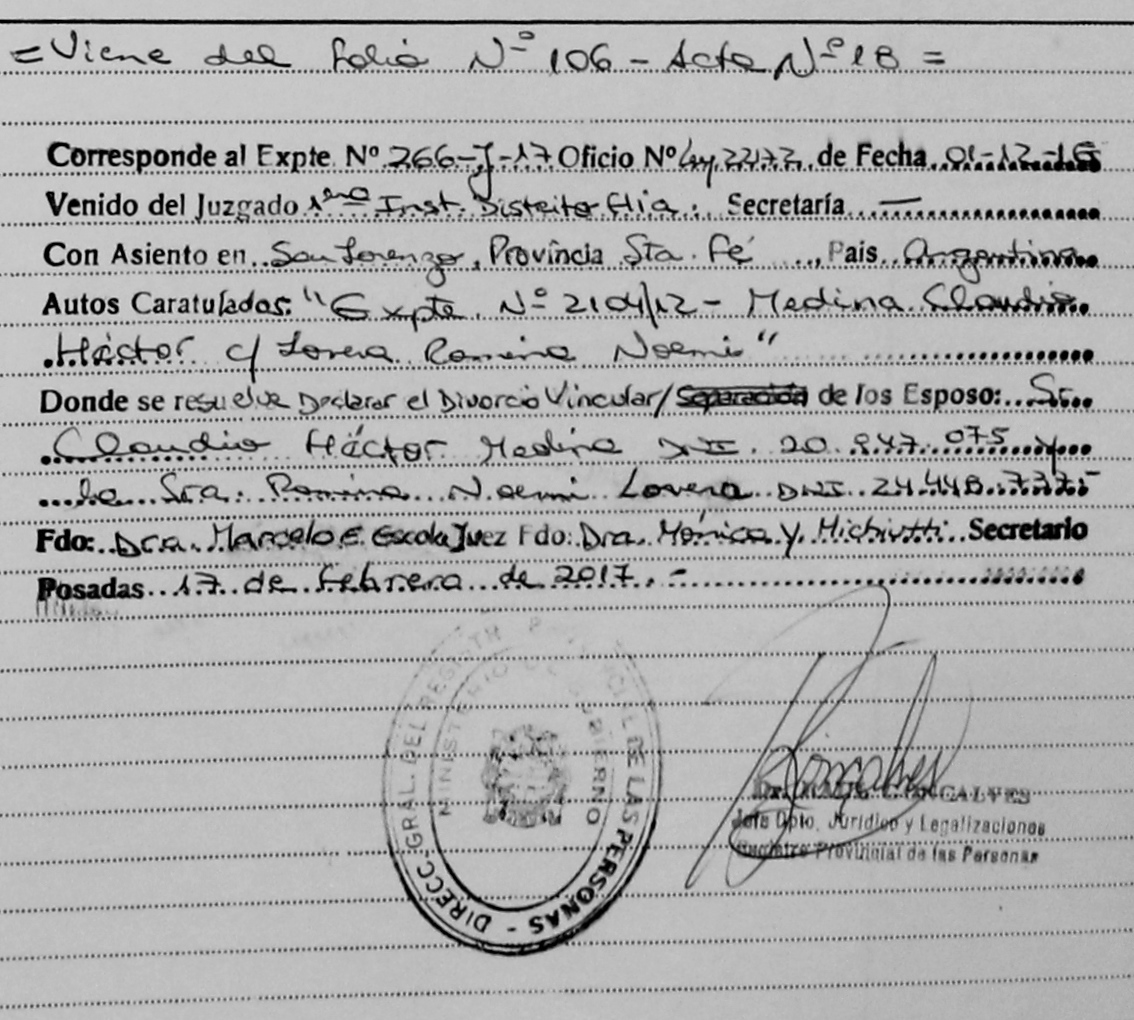 = Viene del folio Nº 106 - Acta Nº 18 =
Corresponde al Expte. Nº 266-J-17 Oficio Nº 22172 de Fecha 01-12-16
Venido del Juzgado 1era Inst. Distrito flia. Secretaría —
Con Asiento en San Lorenzo, Provincia Sta. Fé, Pais Argentina
Autos Caratulados: "Expte. Nº 2104/12 - Medina Claudio
Héctor c/ Lovera Romina Noemi"
Donde se resuelve Declarar el Divorcio Vincular/Separación de los Esposo: Sr.
Claudio Héctor Medina DNI. 20.847.075 y
la Sra. Romina Noemi Lovera DNI. 24.448.777.-
Fdo: Dra. Marcelo E. Escola Juez Fdo: Dra. Mónica Y. Secretario
Posadas 17 de febrero de 2017.-
DIRECC. GRAL. DEL REGISTR PROVINCIAL DE LAS PERSONAS -
MINISTERIO DE GOBIERNO
GONCALVES
Jefa Dpto. Jurídico y Legalizaciones
Registro Provincial de las Personas